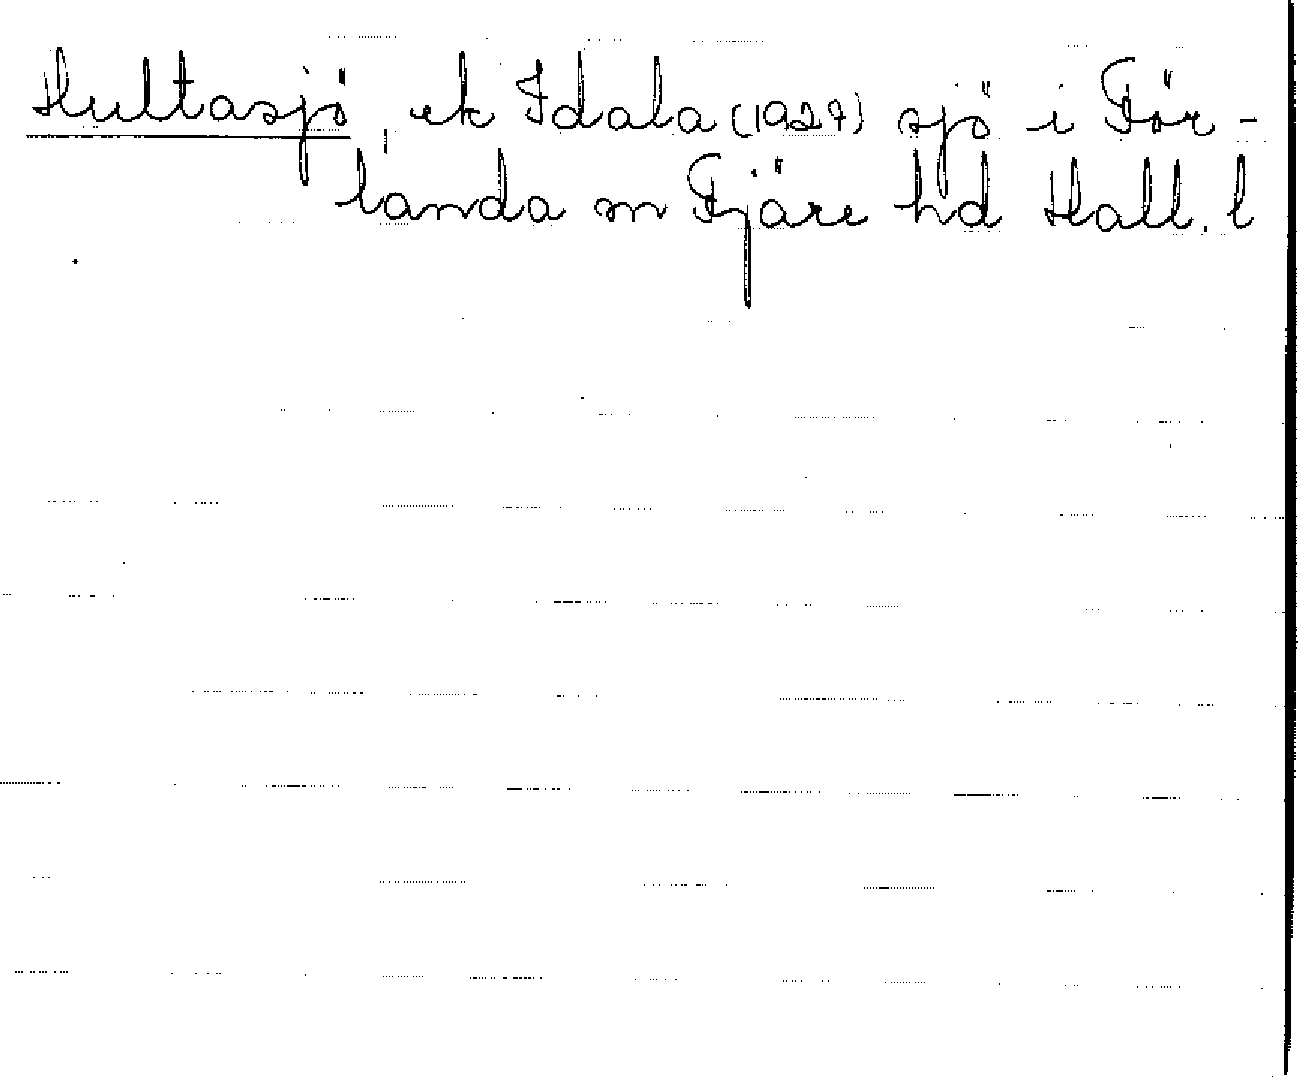 Hultasjö, ek Idala (1927) sjö i För-
landa sn Fjäre hd Hall. l